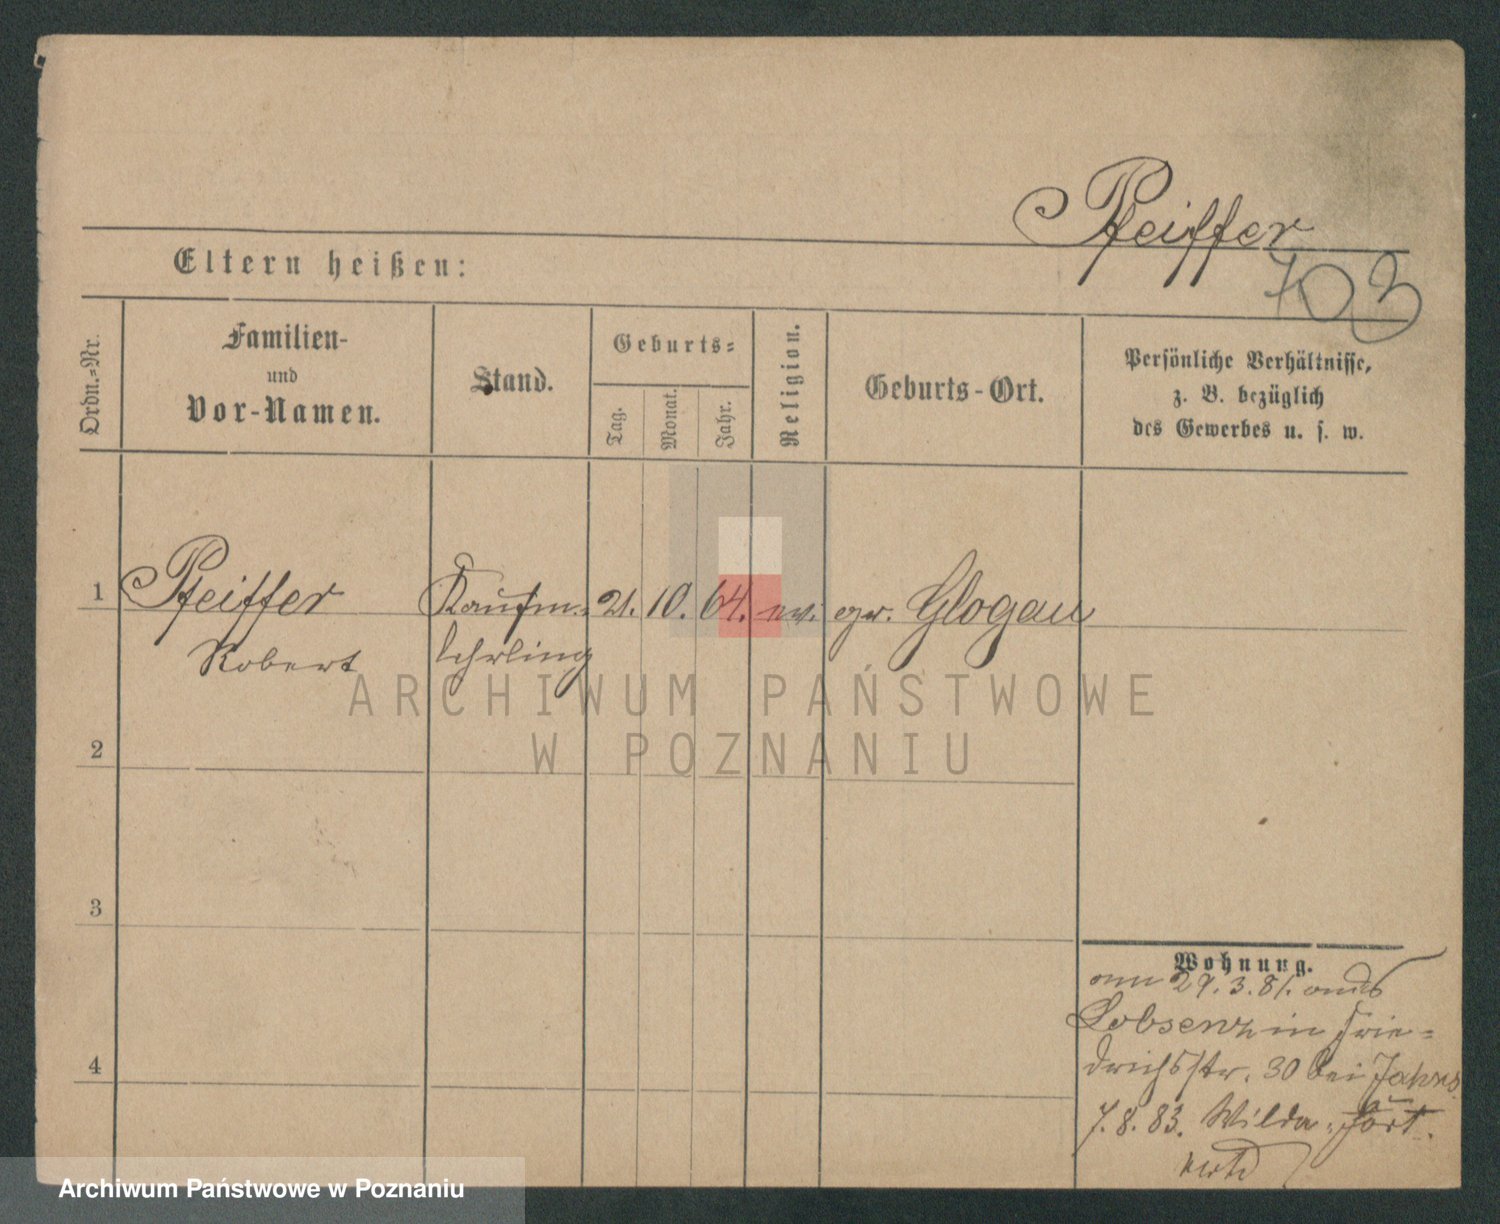 Pfeiffer
703
Eltern heißen:
Ordn.=Nr.
Familien-
und
Vor-Namen.
Stand.
Geburts=
Tag.
Monat.
Jahr.
Religion.
Geburts-Ort.
Persönliche Verhältnisse,
z. B. bezüglich
des Gewerbes u. s. w.
1 Pfeiffer Kaufm= 21. 10. 64. ev. gr. Glogau
Robert lehrling
ARCHIWUM PAŃSTWOWE
W POZNANIU
2
3
4
Wohnung.
am 29.3.81. aus
Lobsenz in Frie=
drichsstr. 30 bei
7.8.83. Wilda
Archiwum Państwowe w Poznaniu